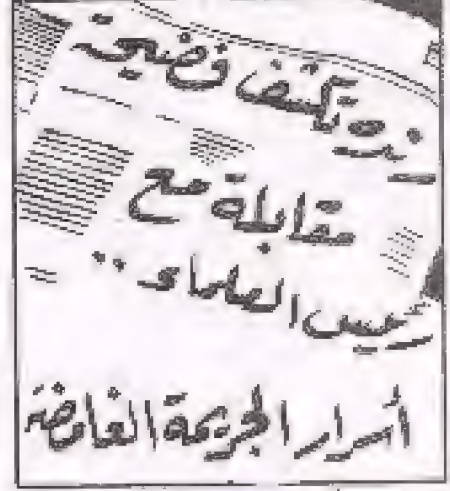 تكشف فضيحة
مقابلة مع
رئيس العلماء ..
أسرار الجريمة الغامضة